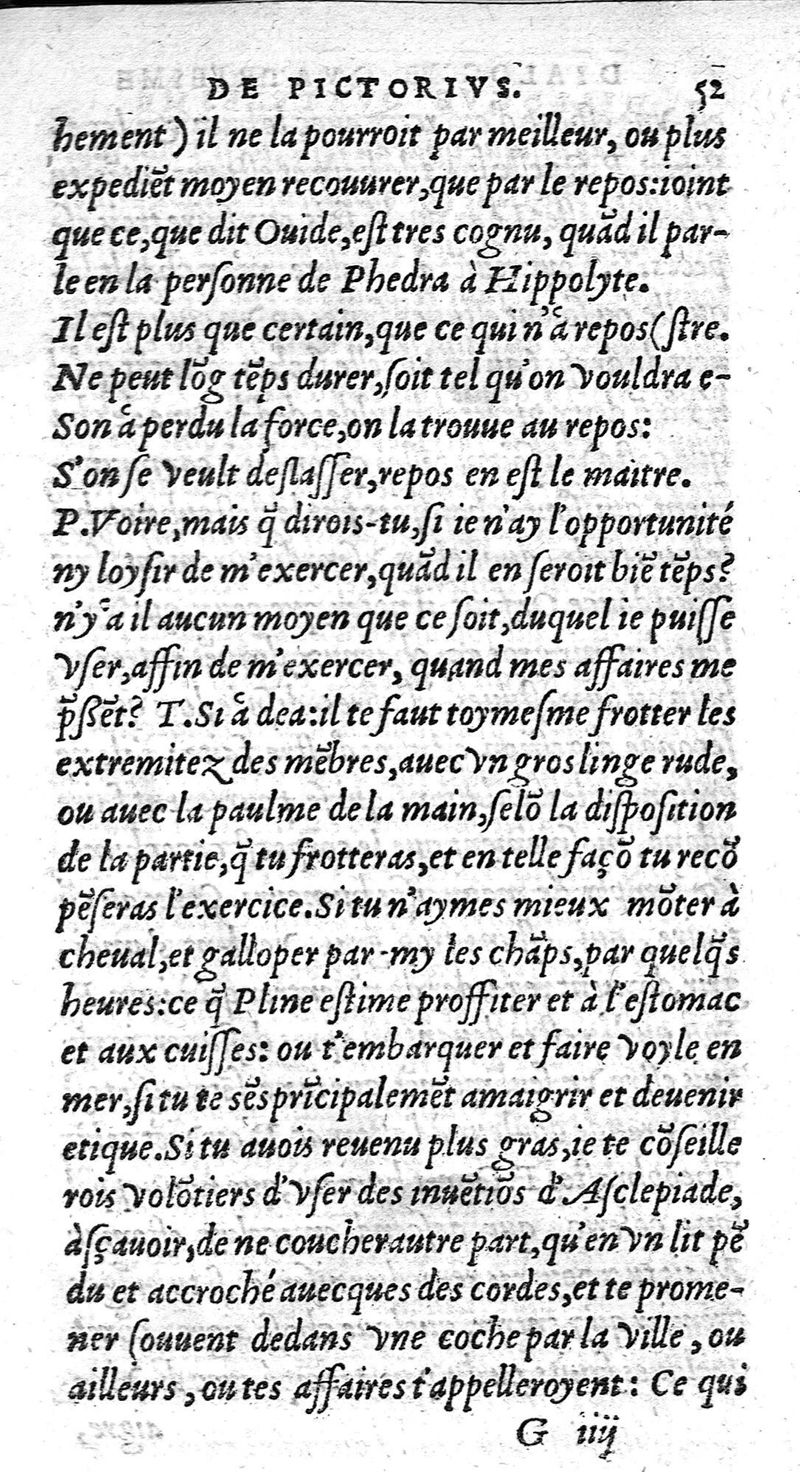 DE PICTORIVS. 52
hement) il ne la pourroit par meilleur, ou plus
expediẽt moyen recouurer, que par le repos: ioint
que ce, que dit Ouide, eſt tres cognu, quãd il par-
le en la perſonne de Phedra à Hippolyte.
Il eſt plus que certain, que ce qui n'à repos (ſtre.
Ne peut lõg tẽps durer, ſoit tel qu'on vouldra e-
S'on à perdu la force, on la trouue au repos:
S'on ſe veult deſlaſſer, repos en eſt le maitre.
P. Voire, mais q̃ dirois-tu, ſi ie n'ay l'opportunité
ny loyſir de m'exercer, quãd il en ſeroit biẽ tẽps?
n'y'a il aucun moyen que ce ſoit, duquel ie puiſſe
vſer, affin de m'exercer, quand mes affaires me
p̃ſſẽt? T. Si à dea: il te faut toymeſme frotter les
extremitez des mẽbres, auec vn gros linge rude,
ou auec la paulme de la main, ſelõ la diſpoſition
de la partie, q̃ tu frotteras, et en telle façõ tu recõ
pẽſeras l'exercice. Si tu n'aymes mieux mõter à
cheual, et galloper par-my les chãps, par quelq̃s
heures: ce q̃ Pline eſtime proffiter et à l'eſtomac
et aux cuiſſes: ou t'embarquer et faire voyle en
mer, ſi tu te sẽs prĩcipalemẽt amaigrir et deuenir
etique. Si tu auois reuenu plus gras, ie te cõſeille
rois volõtiers d'vſer des inuẽtiõs d'Aſclepiade,
àſçauoir, de ne coucher autre part, qu'en vn lit pẽ
du et accroché auecques des cordes, et te prome-
ner ſouuent dedans vne coche par la ville, ou
ailleurs, ou tes affaires t'appelleroyent: Ce qui
G iiij